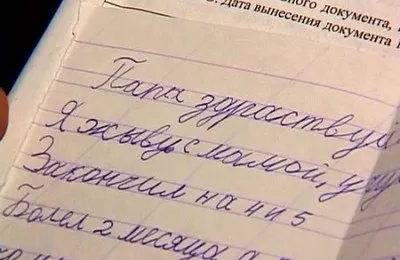 ного документа,
Дата вынесения документа
Папа здраствуй
Я жыву с мамой,
Закончил на 4 и 5
Болел 2 месяца